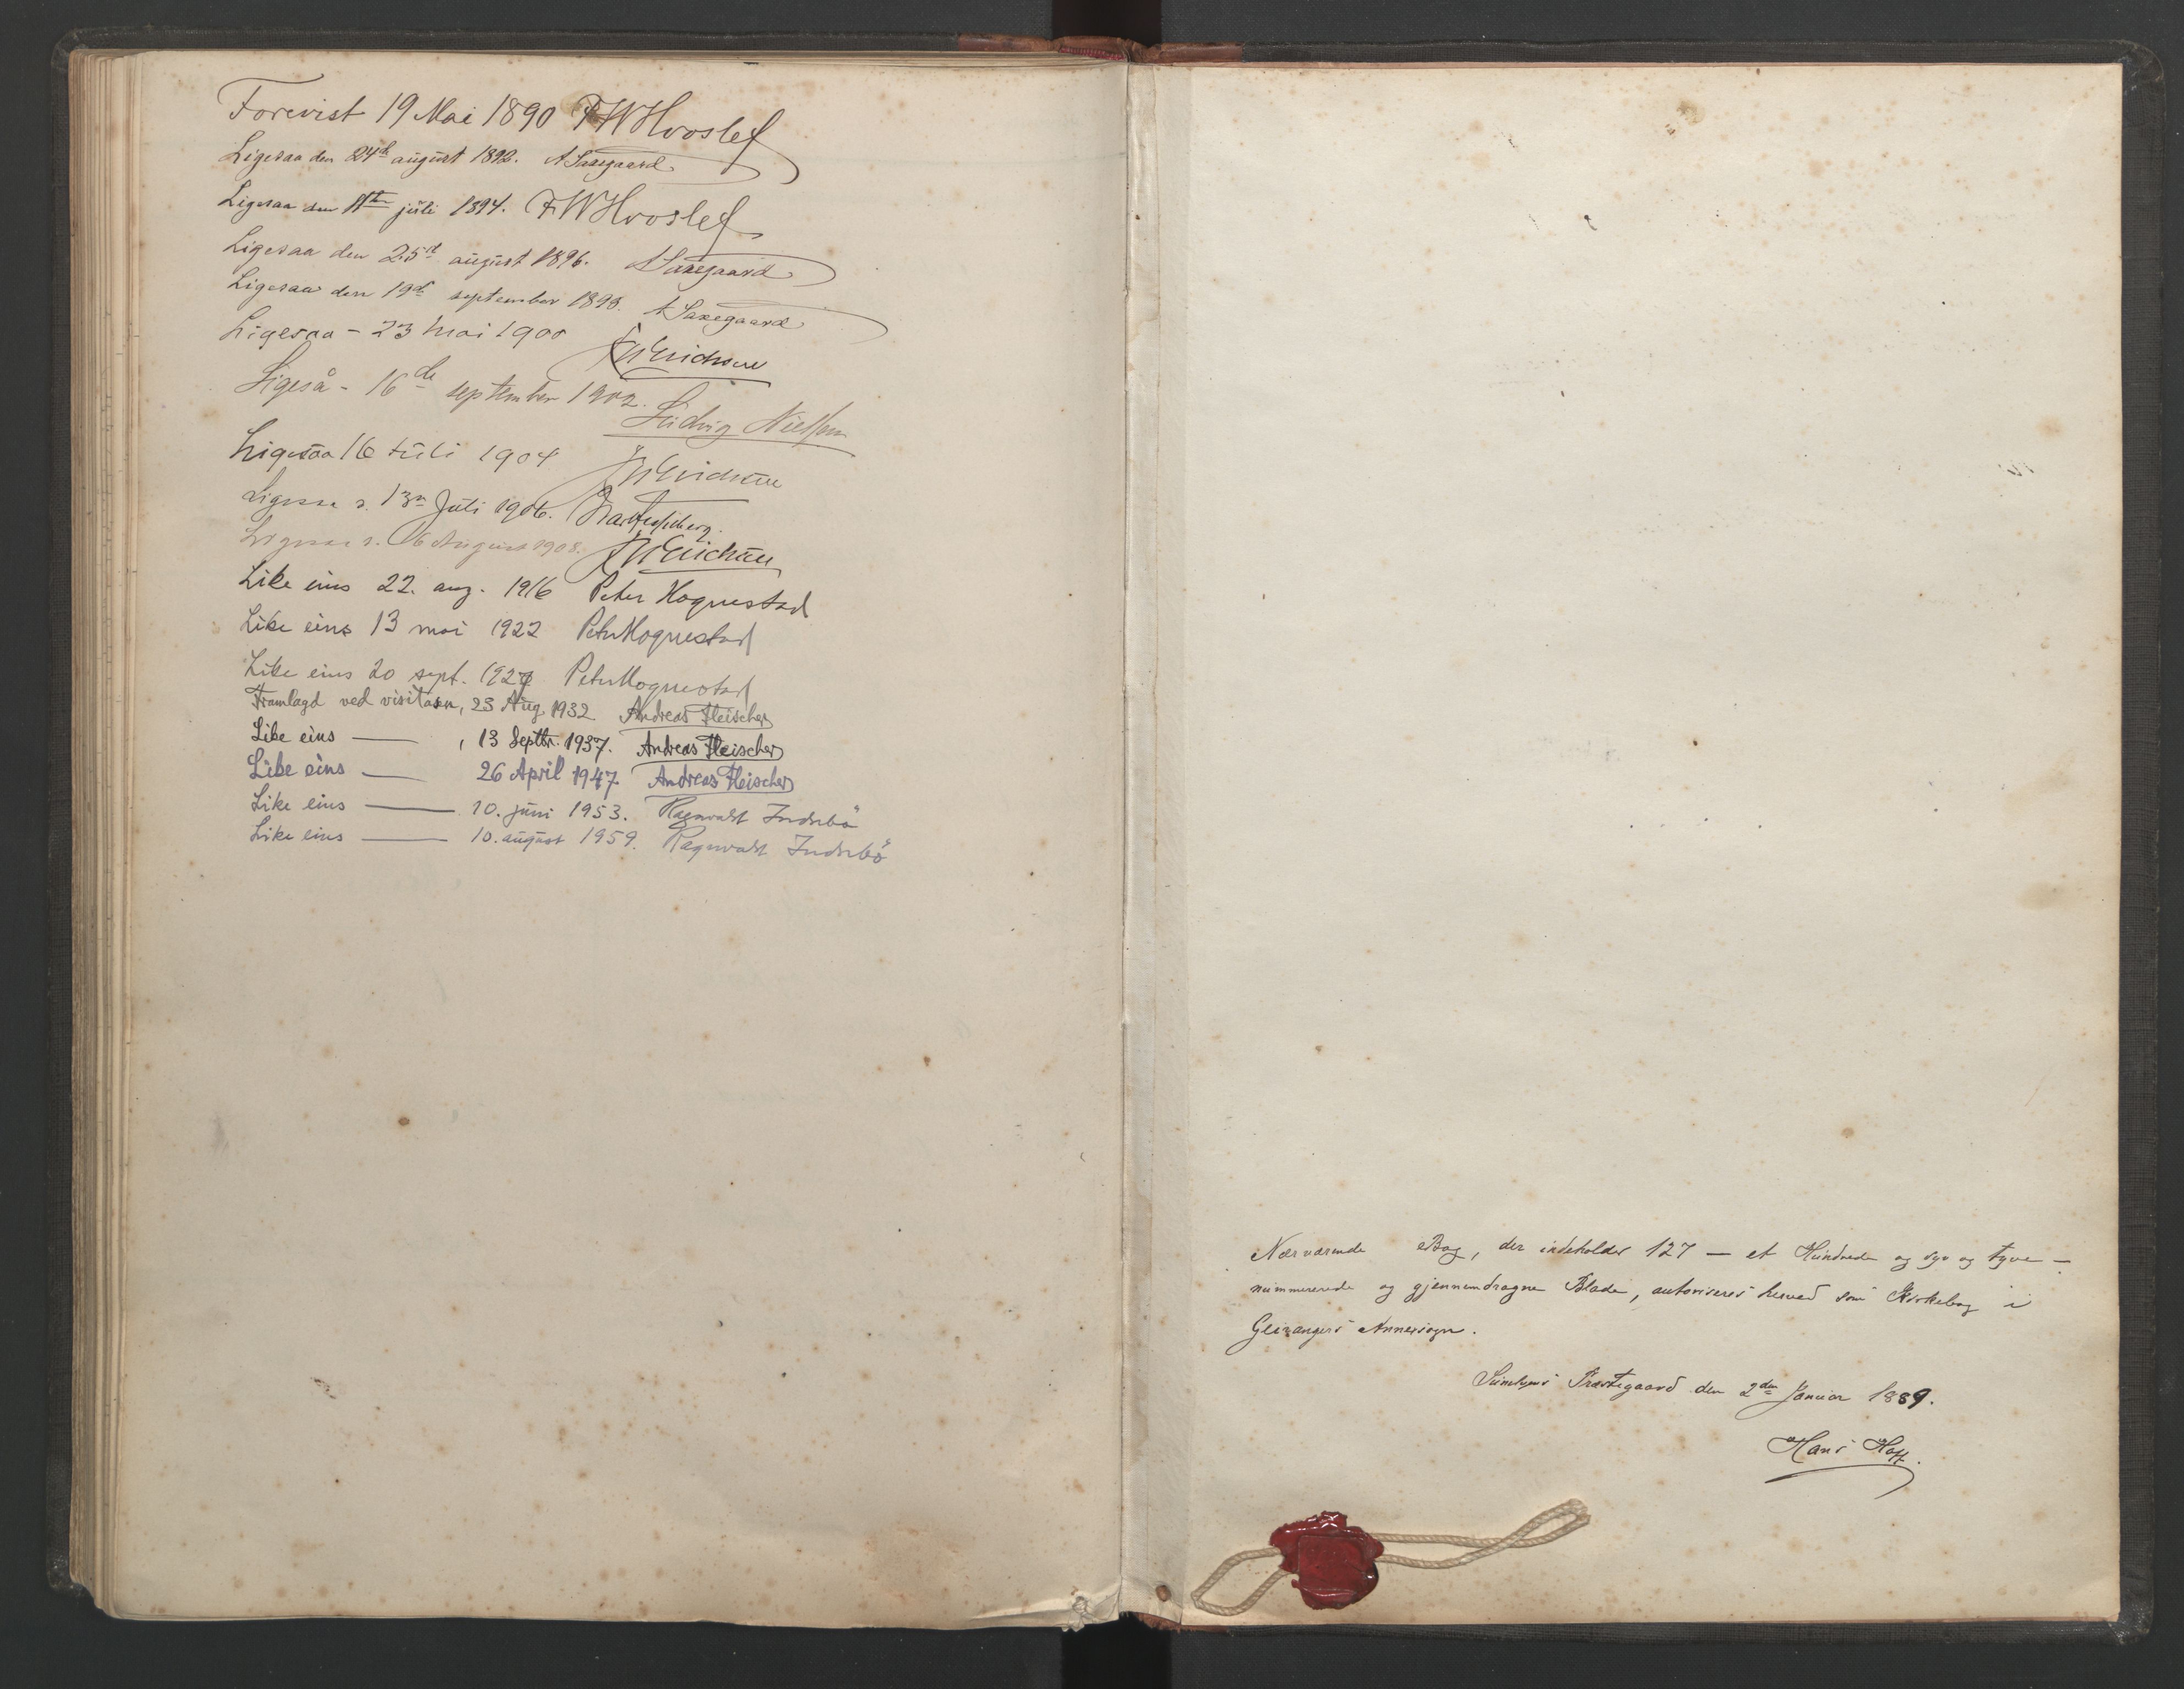 Forevist 19 Mai 1890 FWHvoslef
Ligesaa den 24d august 1892. ASaxegaard
Ligesaa den juli 1894. FWHvoslef
Ligesaa den 25d august 1896. ASaxegaard
Ligesaa den 19d september 1898. ASaxegaard
Ligesaa - 23 Mai 1900 JWErichsen
Ligeså - 16de september 1902. Ludvig Nielsen
Ligesaa 16 Juli 1904 JWErichsen
Ligesaa d. 13n Juli 1906.
Ligesaa d. 6 August 1908. JWErichsen
Like eins 22. aug. 1916 Peter Hognestad
Like eins 13 mai 1922 Peter Hognestad
Like eins 20 sept. Peter Hognestad
Framlagd ved visitasen, 23 Aug. 1932 Andreas Fleischer
Like eins — , 13 Septbr. 1937. Andreas Fleischer
Like eins — 26 April 1947 Andreas Fleischer
Like eins — 10. juni 1953. Ragnvald Indrebö
Like eins — 10. august 1959. Ragnvald Indrebö
Nærværende Bog, der indeholder 127 — et Hundrede og syv og tyve —
nummererede og gjennemdragne Blade, autoriseres herved som Kirkebog i
Geirangers Annexsogn.
Sunelvens Præstegaard den 2den Januar 1889.
Hans Hoff.